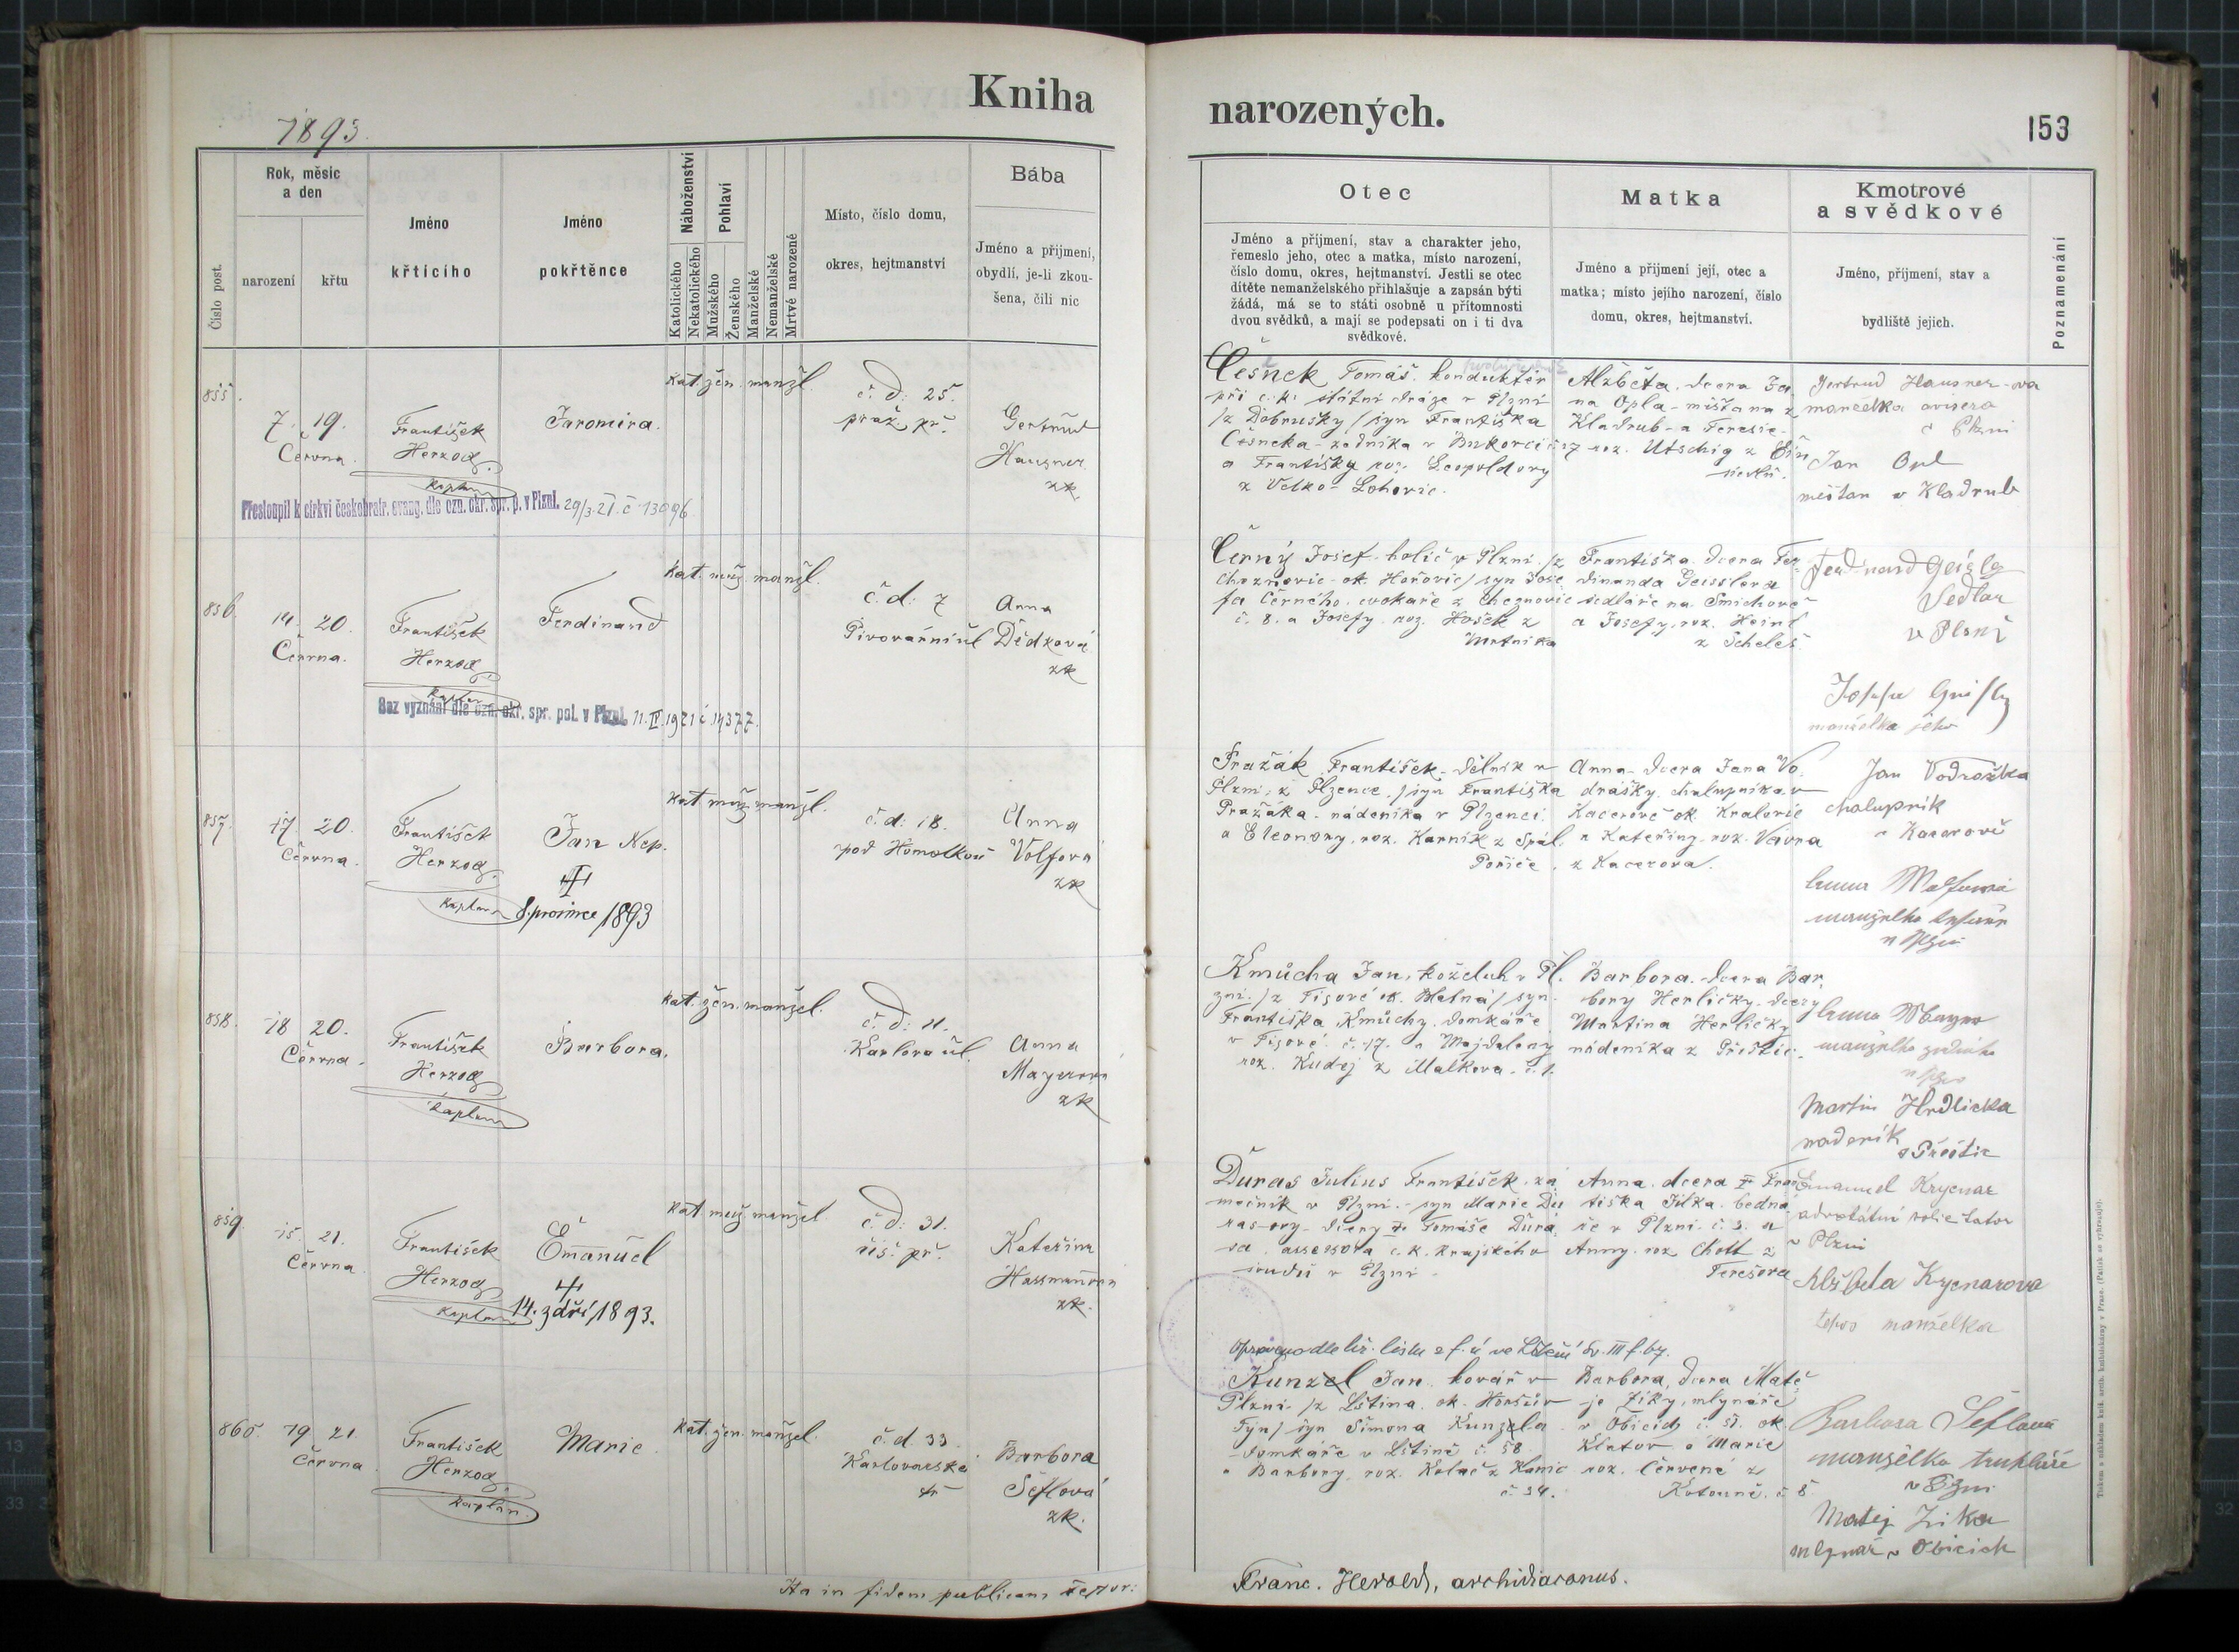 Kniha
narozených.
153
1893.
Číslo post.
Rok, měsíc
a den
narození
křtu
Jméno
křticího
Jméno
pokřtěnce
Náboženství
Katolického
Nekatolického
Pohlaví
Mužského
Ženského
Manželské
Nemanželské
Mrtvé narozené
Místo, číslo domu,
okres, hejtmanství
Bába
Jméno a příjmení,
obydlí, je-li zkou-
šena, čili nic
Otec
Jméno a příjmení, stav a charakter jeho,
řemeslo jeho, otec a matka, místo narození,
číslo domu, okres, hejtmanství. Jestli se otec
dítěte nemanželského přihlašuje a zapsán býti
žádá, má se to státi osobně u přítomnosti
dvou svědků, a mají se podepsati on i ti dva
svědkové.
Matka
Jméno a příjmení její, otec a
matka; místo jejího narození, číslo
domu, okres, hejtmanství.
Kmotrové
a svědkové
Jméno, příjmení, stav a
bydliště jejich.
Poznamenání
855.
7. 19.
Června.
František
Herzog
kaplan
Jaromira.
kat. žen. manžl.
č. d: 25.
praž. př.
Gertrud
Hausner
zk.
Přestoupil k církvi českobratr. evang. dle ozn. okr. spr. p. v Plzni. 29/3. 21. č. 13096
Češnek Tomáš. konduktér
při c. k. státní dráze v Plzni
/z Dobrušky/ syn Františka
Češneka - zedníka v Bukovči
a Františky roz. Leopoldovy
z Velko-Lohovic.
Alžběta. dcera Ja-
na Opla - měšťana z
Kladrub - a Teresie -
roz. Utschig z
Gertrud Hausner-ova
manželka
v Plzni
Jan Opl
měštan v Kladrub
856.
14. 20.
Června.
František
Herzog
kaplan
Ferdinand
kat. muž. manžl.
č. d: 7
Pivovární ul
Anna
Dědková
zk
Bez vyznání dle ozn. okr. spr. pol. v Plzni. 11. II. 1921 č 14377.
Černý Josef - holič v Plzni /z
Cheznovic - ok. Hořovic/ syn Jose-
fa Černého, cvokaře z Cheznovic
č. 8. a Josefy. roz. Hošek z
Mrtníka
Františka. dcera Fer-
dinanda Geisslera
sedláře na Smíchově
a Josefy, roz. Heinl
z Scheles
Ferdinand
Sedlar
v Plsni
manželka jeho
857.
17. 20.
Června.
František
Herzog
kaplan
Jan Nep.
8. prosince 1893
kat. muž. manžl.
č. d: 18.
pod Homolkou
Anna
Volfová
zk
Pražák František - dělník v
Plzni; z Plzence, /syn Františka
Pražáka. nádeníka v Plzenci.
a Eleonory, roz. Karník z Spál.
Poříče.
Anna - dcera Jana Vo-
drášky. chalupníka v
Kacerově ok. Kralovic
a Kateřiny. roz. Vávra
z Kacerova.
Jan Vodrožka
chalupnik
v Kacerově
manželka
v Plzni
858.
18 20.
Června.
František
Herzog
kaplan
Barbora.
kat. žen. manžel.
č. d: 11.
Karlova ul.
Anna
Mayerova
zk
Kmůcha Jan, koželuh v Pl-
zni. /z Tisové ok. Blatná/ syn.
Františka Kmůchy. domkáře
v Tisové č. 17. a Majdaleny
roz. Kudej z Malkova. č. 1.
Barbora. dcera Bar-
bory Herličky. dcery
Martina Herličky
nádeníka z Přeštic.
manželka
Martin Hrdlicka
nadeník
v Přeštic
859.
15. 21.
Června
František
Herzog
kaplan
Emanuel
14. září 1893.
kat muž manžel
č. d: 31.
říš. př.
Kateřina
Hassmannova
zk.
Ďuras Julius František. zá-
močník v Plzni. - syn Marie Du-
ras-ovy - dcery Tomáše Ďura-
sa. assessora c. k. krajského
soudu v Plzni.
Anna. dcera Fran-
tiška Jilka. bedná-
ře v Plzni. č. 3. a
Anny. roz Chott z
Terešova
Emanuel Krycnar
v Plzni
Alžběta Krycnarova
tehoz manželka
860.
19 21.
Června
František
Herzog
kaplan.
Marie
kat. žen. manžel.
č. d. 33.
Karlovarská
tř
Barbora
Šeflová
zk.
Kunzel Jan. kovář v
Plzni. /z Lština, ok. Horšův
Týn/ syn Šimona Kunzela
domkáře v Lštině č. 58
a Barbory, roz. Kolač z Hanic
č. 34.
Barbora, dcera Matě-
je Ziky, mlynáře
v Obicích č. 51. ok.
Klatov a Marie
roz. Červené z
Kotouně. č. 8
Barbora Šeflová
manželka truhláře
v Plzni
Matěj Zika
mlynář v Obicich
Ita in fidem publicam testor:
Franc. Herold, archidiaconus.